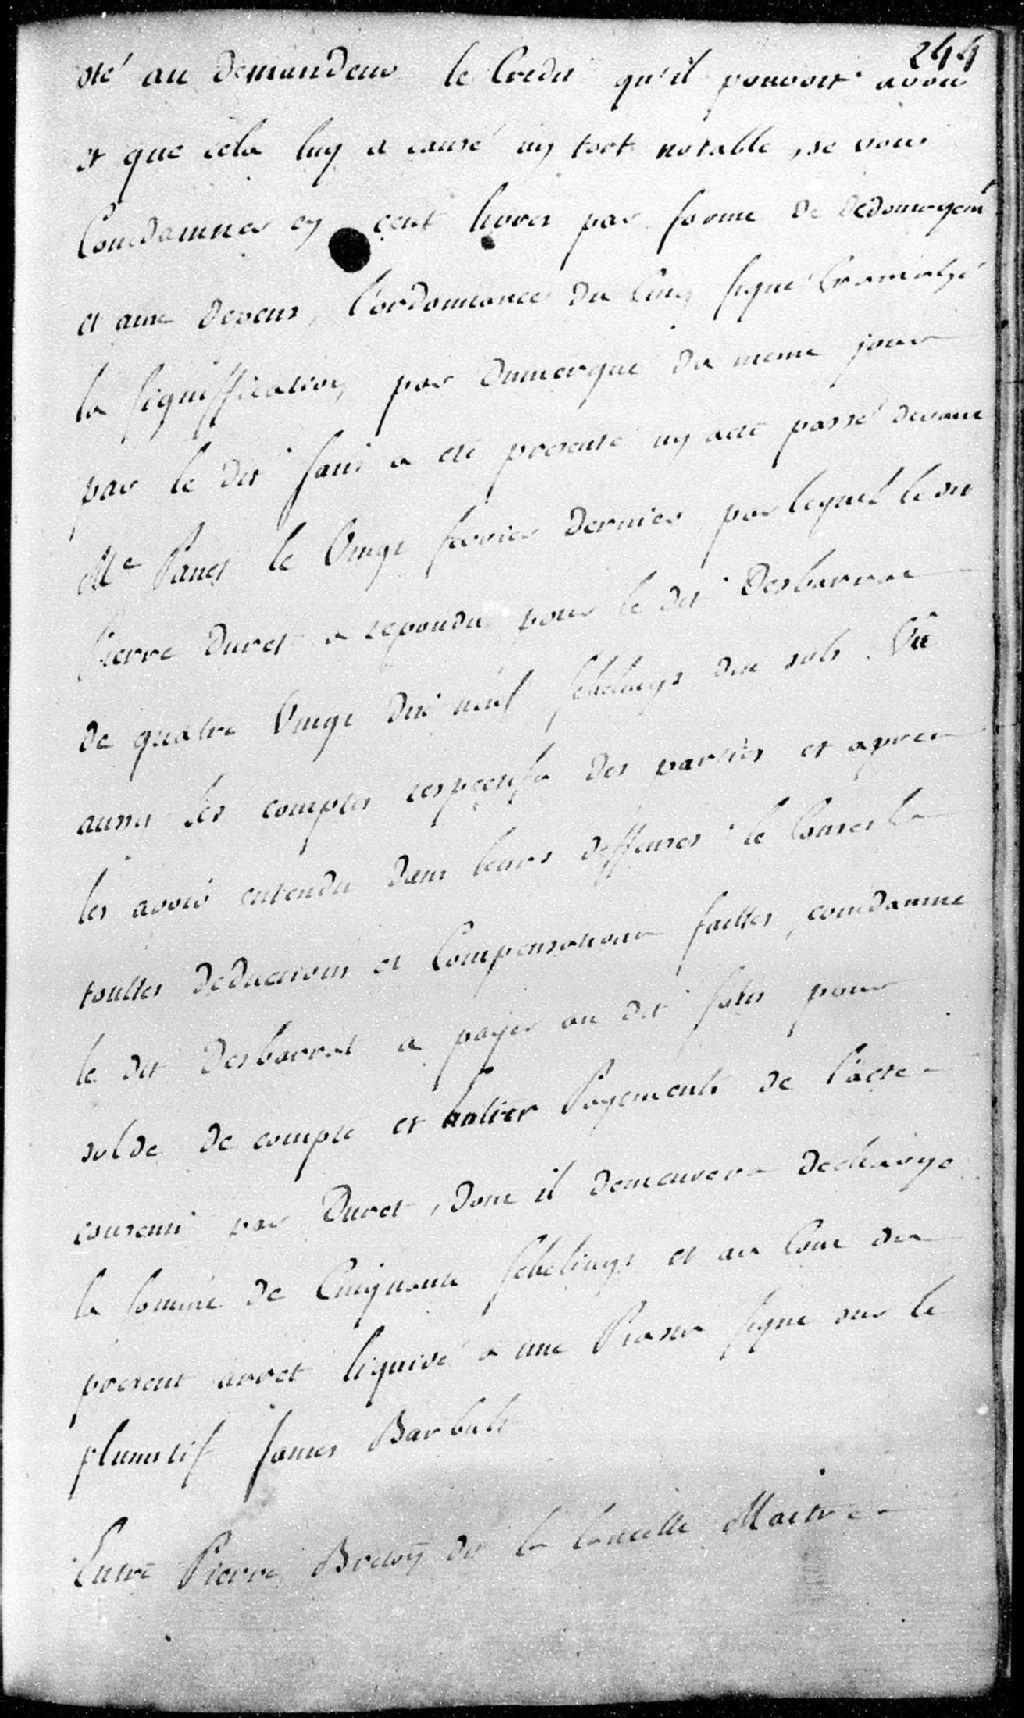 244
oté au demandeur le Credit qu'il pouvoit avoir
et que cela luy a causé uy tort notable, se vous
Condamnes ey cent livres par forme de dedomagemt
et aux depens, l'ordonnance du Cinq signé Cramahé
la signiffication par Dumergue du meme jour
par le dit Janis a eté presenté uy acte passé devant
Me Panet le Vingt fevrier dernier par lequel le dit
Pierre Duret a repondu pour le dit Desbarrat
de quatre Vingt dix neuf schelings dix sols. Vû
aussi les comptes respectifs des parties et apres
les avoir entendu dans leurs deffenses le Conseil
touttes deductions et Compensations faittes, condamne
le dit Desbarrat a payer au dit pour
solde de compte et Payements de l'acte
consenti par Duret, dont il demeurera dechargé
la somme de Cinquante schelings et au Cout du
present arret liquidé a une Piastre signé sur le
plumitif James Barbutt
Entre Pierre Bretoy dit la Maitre